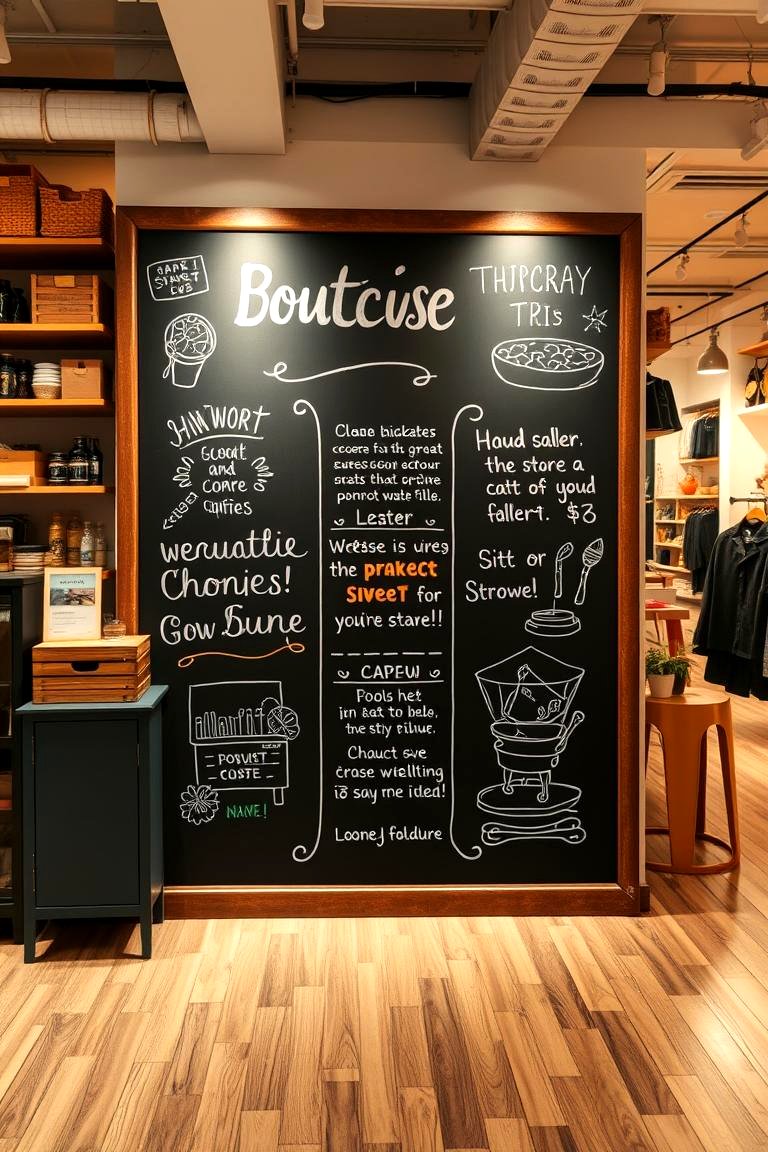 Boutcuse
THIPCRAY
TRIs
JHNWORT
Goodt
and
Comre
werualtlie
Chonies!
Gow Sune
POSVIET
COSTE
NANE!
Clane bickates
cocere fa th great
seats that
ponnot waste fille.
Lester
Wetse is ures
the prakect
SIVEET for
you're stare!!
CAPEW
Pools het
irn sat to bele,
the sty eilue.
Chauct sve
erase wiellting
is say me idea!
Looney foldure
Haud saller.
the store a
catt of youd
fallert. $3
Sitt or
Strowe!